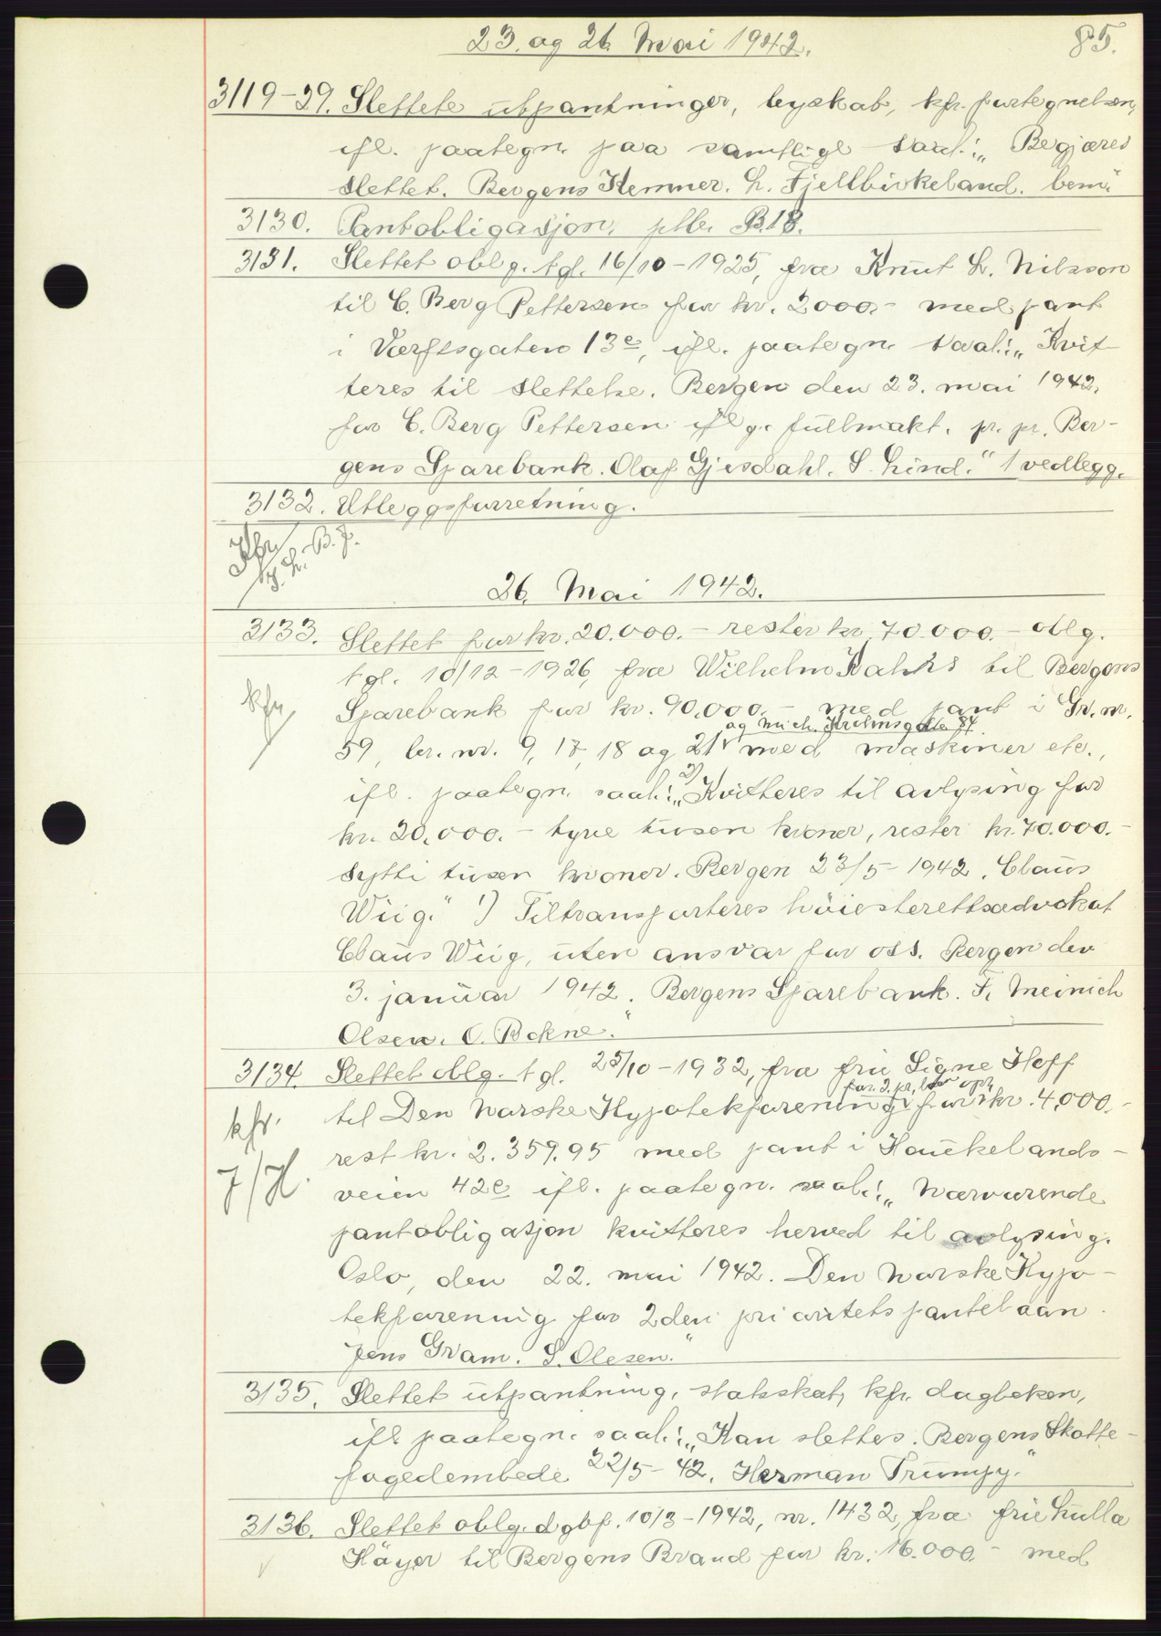 23. og 26 Mai 1942.
85.
3119-29. Slettete utpantninger, byskat, kfr. fortegnelsen,
ifl. paategn. paa samtlige saal.: „Begjæres
slettet. Bergens Kemner. L. Fjellbirkeland. bem."
3130. Pantobligasjon, ptbr. B.18.
3131. Slettet oblg. tgl. 16/10-1925, fra Knut L. Nilsson
til C. Berg Pettersen for kr. 2000.- med pant
i Værftsgaten 13e, ifl. paategn. saal.: „Kvit
teres til slettelse. Bergen den 23. mai 1942.
for C. Berg Pettersen iflg. fullmakt. pr. pr. Ber-
gens Sparebank. Olaf Gjesdahl. S. Lind." 1 vedlegg.
3132. Utleggsforretning.
26. Mai 1942.
3133. Slettet for kr. 20.000.- rester kr. 70.000.- oblg.
tgl. 10/12-1926, fra Wilhelm Kahrs til Bergens
kfr.
Sparebank for kr. 90.000.- med pant i Gr. nr.
og Mich. Krohnsgate 84.
59, br. nr. 9, 17, 18 og 21 med maskiner etc.,
ifl. paategn. saal.: 2) „Kvitteres til avlysing for
kr. 20.000.- tyve tusen kroner, rester kr. 70.000.-
sytti tusen kroner. Bergen 23/5-1942. Claus
Wiig." 1) Tiltransporteres høiesterettsadvokat
Claus Wiig, uten ansvar for oss. Bergen den
3. januar 1942. Bergens Sparebank. Fr. Meinich
Olsen. O. Bokne."
3134. Slettet oblg. tgl. 25/10-1932, fra fru Signe Hoff
for 2. pr. lån opr.
kfr. til Den Norske Hypotekforening for kr. 4.000.-
rest kr. 2.359.95 med pant i Haukelands-
J/H. veien 42e ifl. paategn. saal.: „Nærværende
pantobligasjon kvitteres herved til avlysing.
Oslo, den 22. mai 1942. Den Norske Hypo-
tekforening for 2den prioritets pantelaan.
Jens Gram. S. Olesen."
3135. Slettet utpantning, statsskat, kfr. dagboken,
ifl. paategn. saal.: „Kan slettes. Bergens Skatte-
fogedembede 22/5-42. Herman Trumpy."
3136. Slettet oblg. dgbf. 10/3-1942, nr. 1432, fra frk Lulla
Høyer til Bergens Brand for kr. 16.000.- med